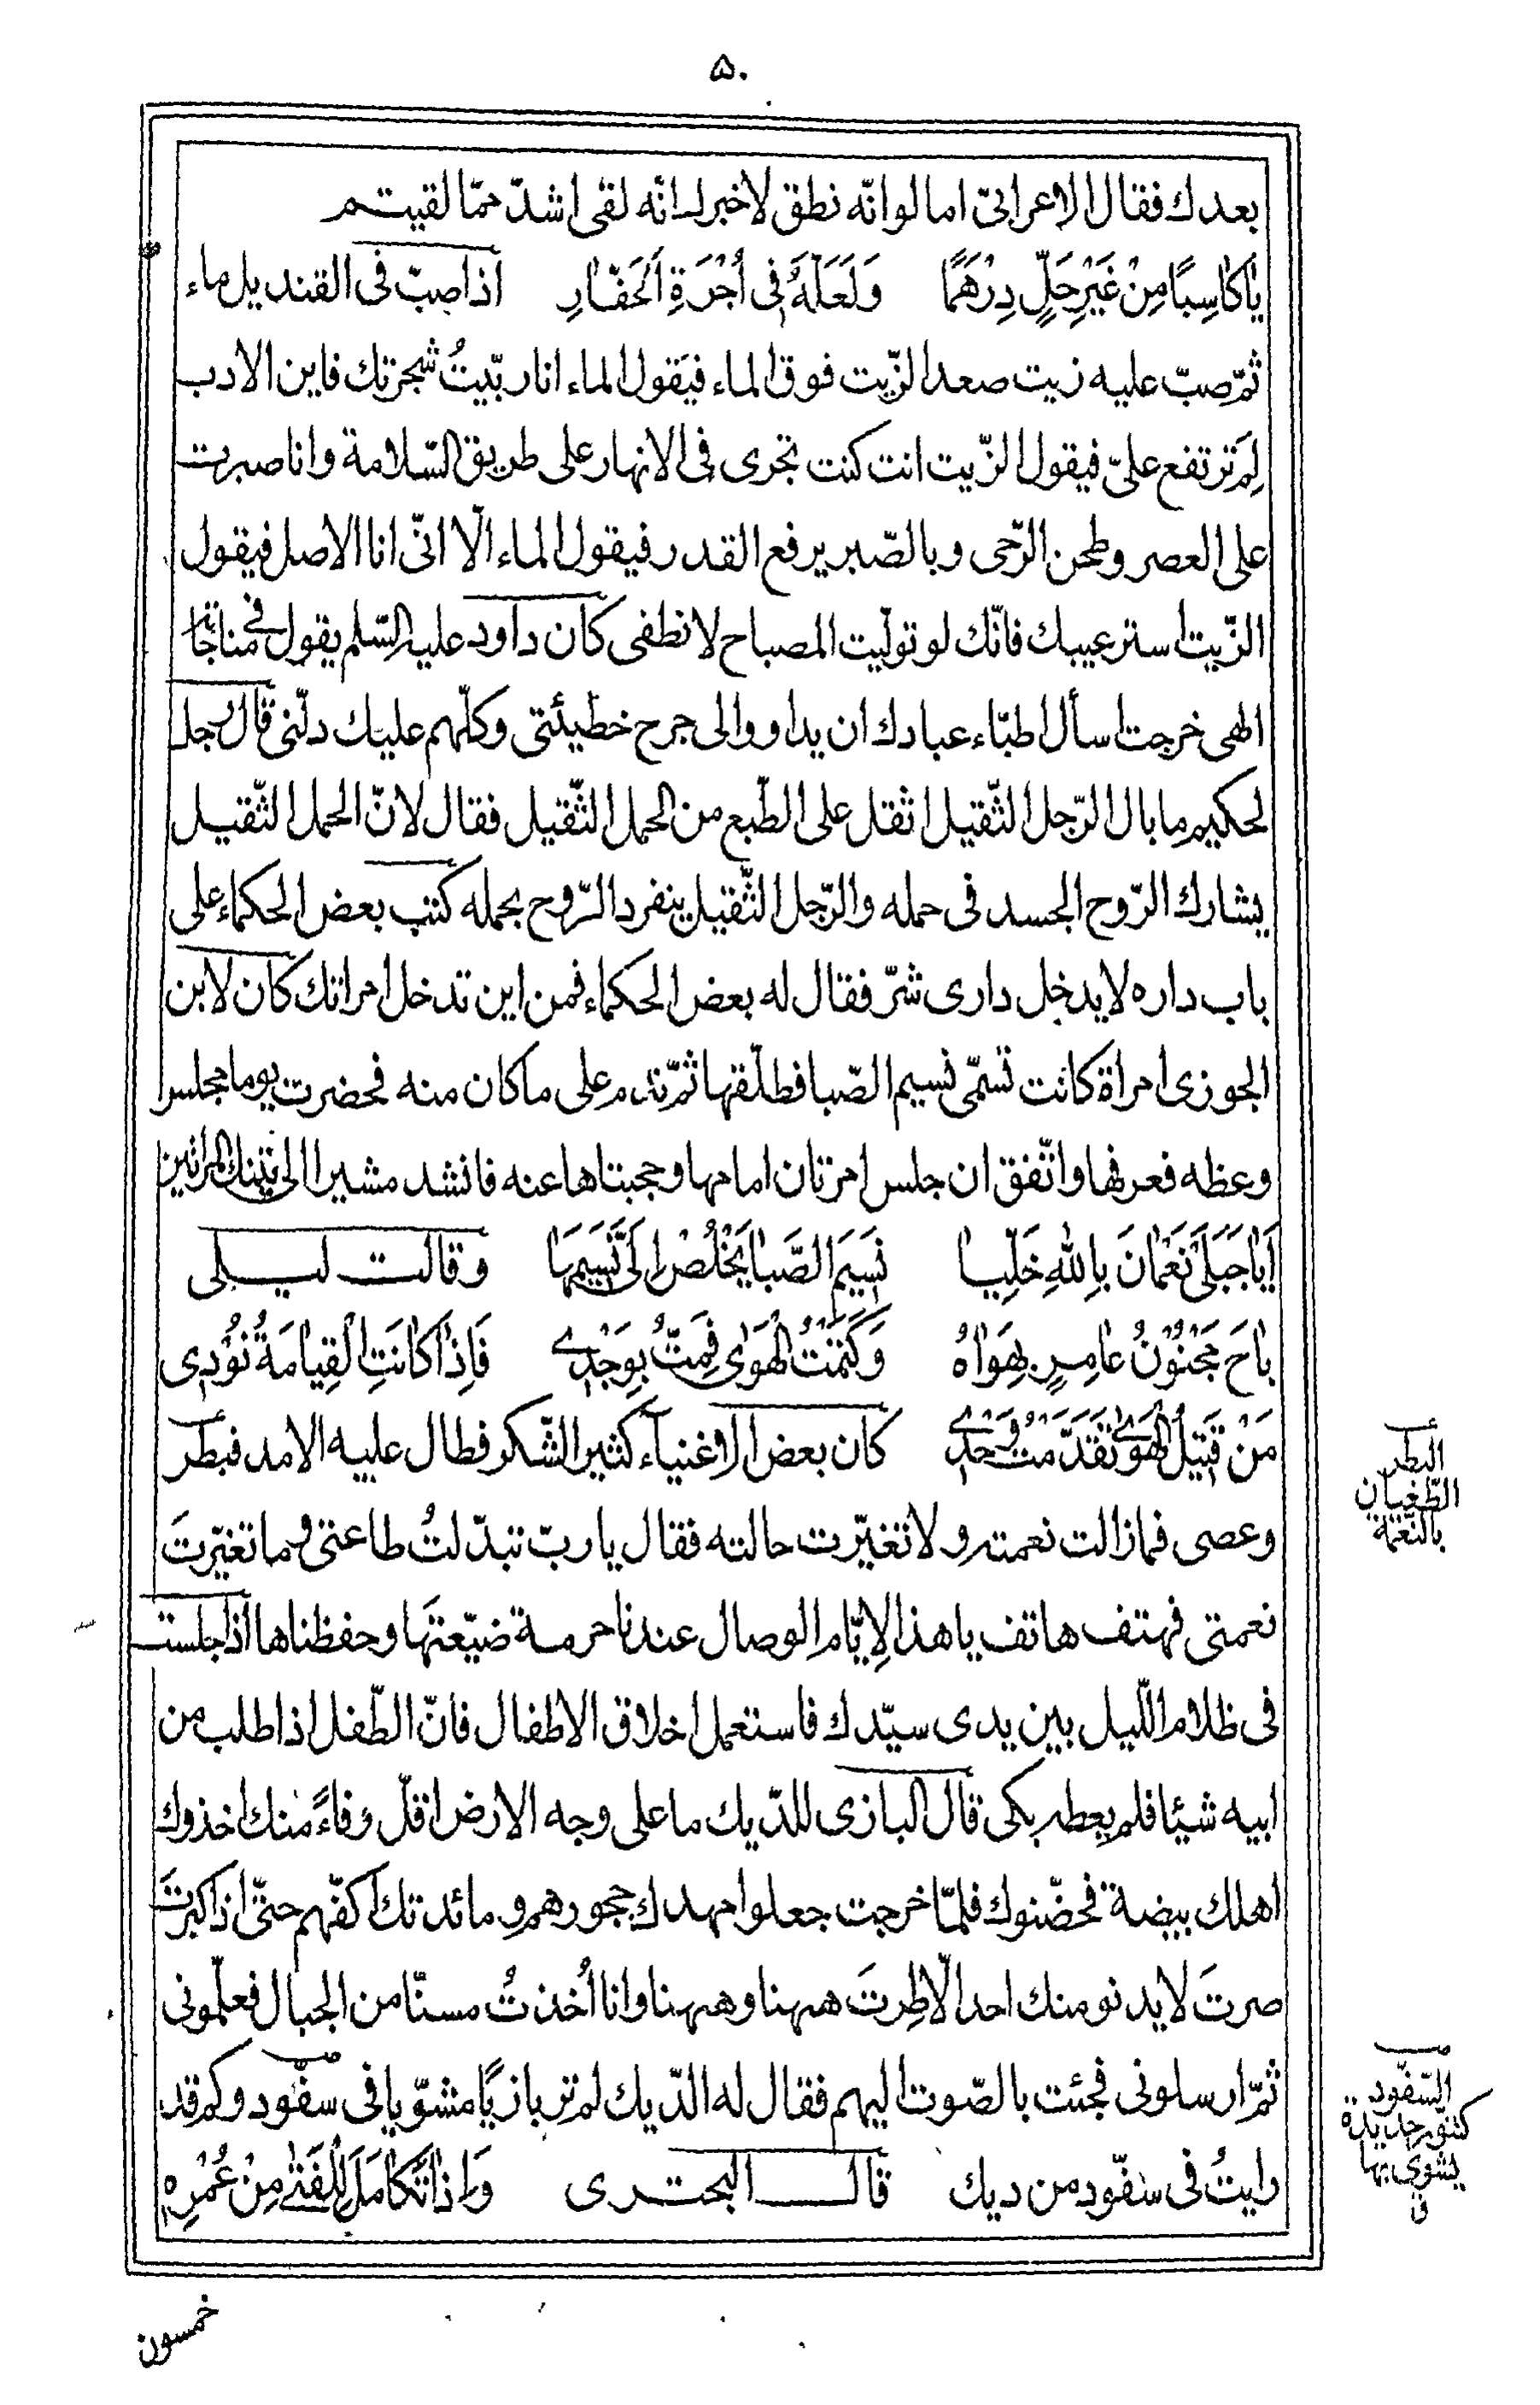 ۵۰
بعدك فقال الاعرابىّ اما لو انّه نطق لاخبر انّه لقى اشدّ ممّا لقيتم
يٰا كٰاسِبًا مِنْ غَيْرِ حَلٍّ دِرْهَمًا وَلَعَلَّهُ فِى اُجْرَةِ الْحَفّٰارِ اذا صبّ فى القنديل ماء
ثمّ صبّ عليه زيت صعد الزّيت فوق الماء فيَقول الماء انا ربّيتُ شجرتك فاين الادب
لِمَ ترتفع علىّ فيقول الزّيت انت كنت تجرى فى الانهار على طريق السّلامة وانا صبرت
على العصر وطحن الرّحى وبالصّبر يرفع القدر فيقول الماء الّا انّى انا الاصل فيقول
الزّيت استر عيبك فانّك لو تولّيت المصباح لانطفى كان داود عليه السّلم يقول فى مناجاته
الهى خرجت اسأل اطبّاء عبادك ان يداووا لى جرح خطيئتى وكلّهم عليك دلّنى قال رجل
لحكيم ما بال الرّجل الثّقيل اثقل على الطّبع من الحمل الثّقيل فقال لانّ الحمل الثّقيل
يشارك الرّوح الجسد فى حمله والرّجل الثّقيل ينفرد الرّوح بحمله كتب بعض الحكماء على
باب داره لا يدخل دارى شرّ فقال له بعض الحكماء فمن اين تدخل امراتك كان لابن
الجوزى امراة كانت تسمّى نسيم الصّبا فطلّقها ثمّ ندم على ما كان منه فحضرت يوما مجلس
وعظه فعرفها واتّفق ان جلس امرتان امامها وحجبتاها عنه فانشد مشيرا الى تينك المراتين
اَيٰا جَبَلَىْ نَعْمٰانَ بِاللّٰهِ خَلِّيٰا نَسِيمَ الصَّبٰا يَخْلُصْ اِلَىَّ نَسِيمُهٰا وقالت ليلى
بٰاحَ مَجْنُوْنُ عٰامِرٍ بِهَوٰاهُ وَكَتَمْتُ الْهَوٰى فَمِتُّ بِوَجْدِى فَاِذٰا كٰانَتِ الْقِيٰامَةُ نُوْدِى
مَنْ قَتِيلُ الْهَوٰى تَقَدَّمْتُ وَحْدِى كان بعض الاغنيآء كثير الشّكر فطال عليه الامد فبطر
وعصى فما زالت نعمته ولا تغيّرت حالته فقال يا ربّ تبدّلتُ طاعتى وما تغيّرتَ
نعمتى فهتف هاتف يا هذا لِايّام الوصال عندنا حرمة ضيّعتَها وحفظناها اذا جلست
فى ظلام اللّيل بين يدى سيّدك فاستعمل اخلاق الاطفال فانّ الطّفل اذا طلب من
ابيه شيئا فلم يعطه بكى قال البازى للدّيك ما على وجه الارض اقلّ وفاءً منك اخذوك
اهلك بيضة فحضّنوك فلمّا خرجت جعلوا مهدك حجورهم ومائدتك اكفّهم حتّى اذا كبرتَ
صرتَ لا يدنو منك احد الّا طِرتَ ههنا وههنا وانا اُخذتُ مسنّا من الجبال فعلّمونى
ثمّ ارسلونى فجئت بالصّوت اليهم فقال له الدّيك لم تر بازيًا مشوّيا فى سفّود وكم قد
رايتُ فى سفّود من ديك قال البحترى وَاِذٰا تَكٰامَلَ لِلْفَتٰى مِنْ عُمْرِهِ
البطر
الطّغيان
بالنّعمة
السّفّود
كتنّور حديدة
يشوى بها
ق
خمسون